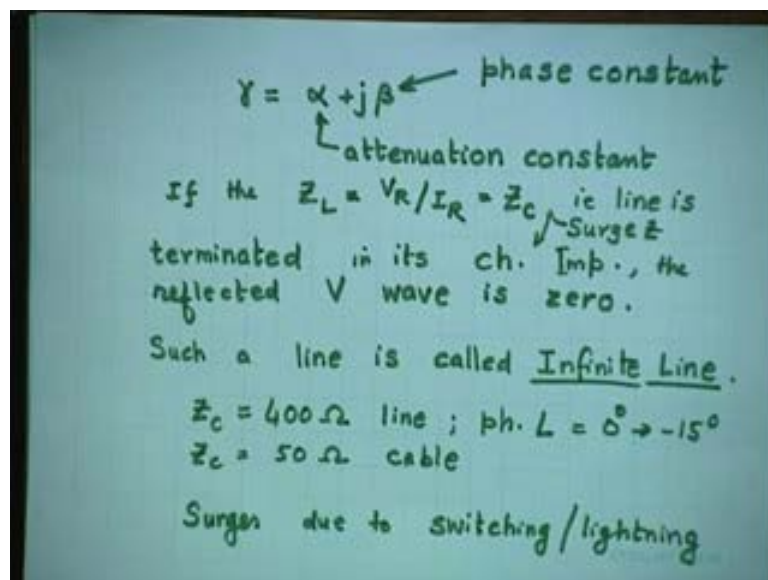 γ = α + jβ ← phase constant
attenuation constant
If the Z_L = V_R/I_R = Z_C ie line is
Surge Z
terminated in its ch. Imp., the
reflected V wave is zero.
Such a line is called Infinite Line.
Z_C = 400 Ω line ; ph. L = 0° → -15°
Z_C = 50 Ω cable
Surges due to switching/lightning